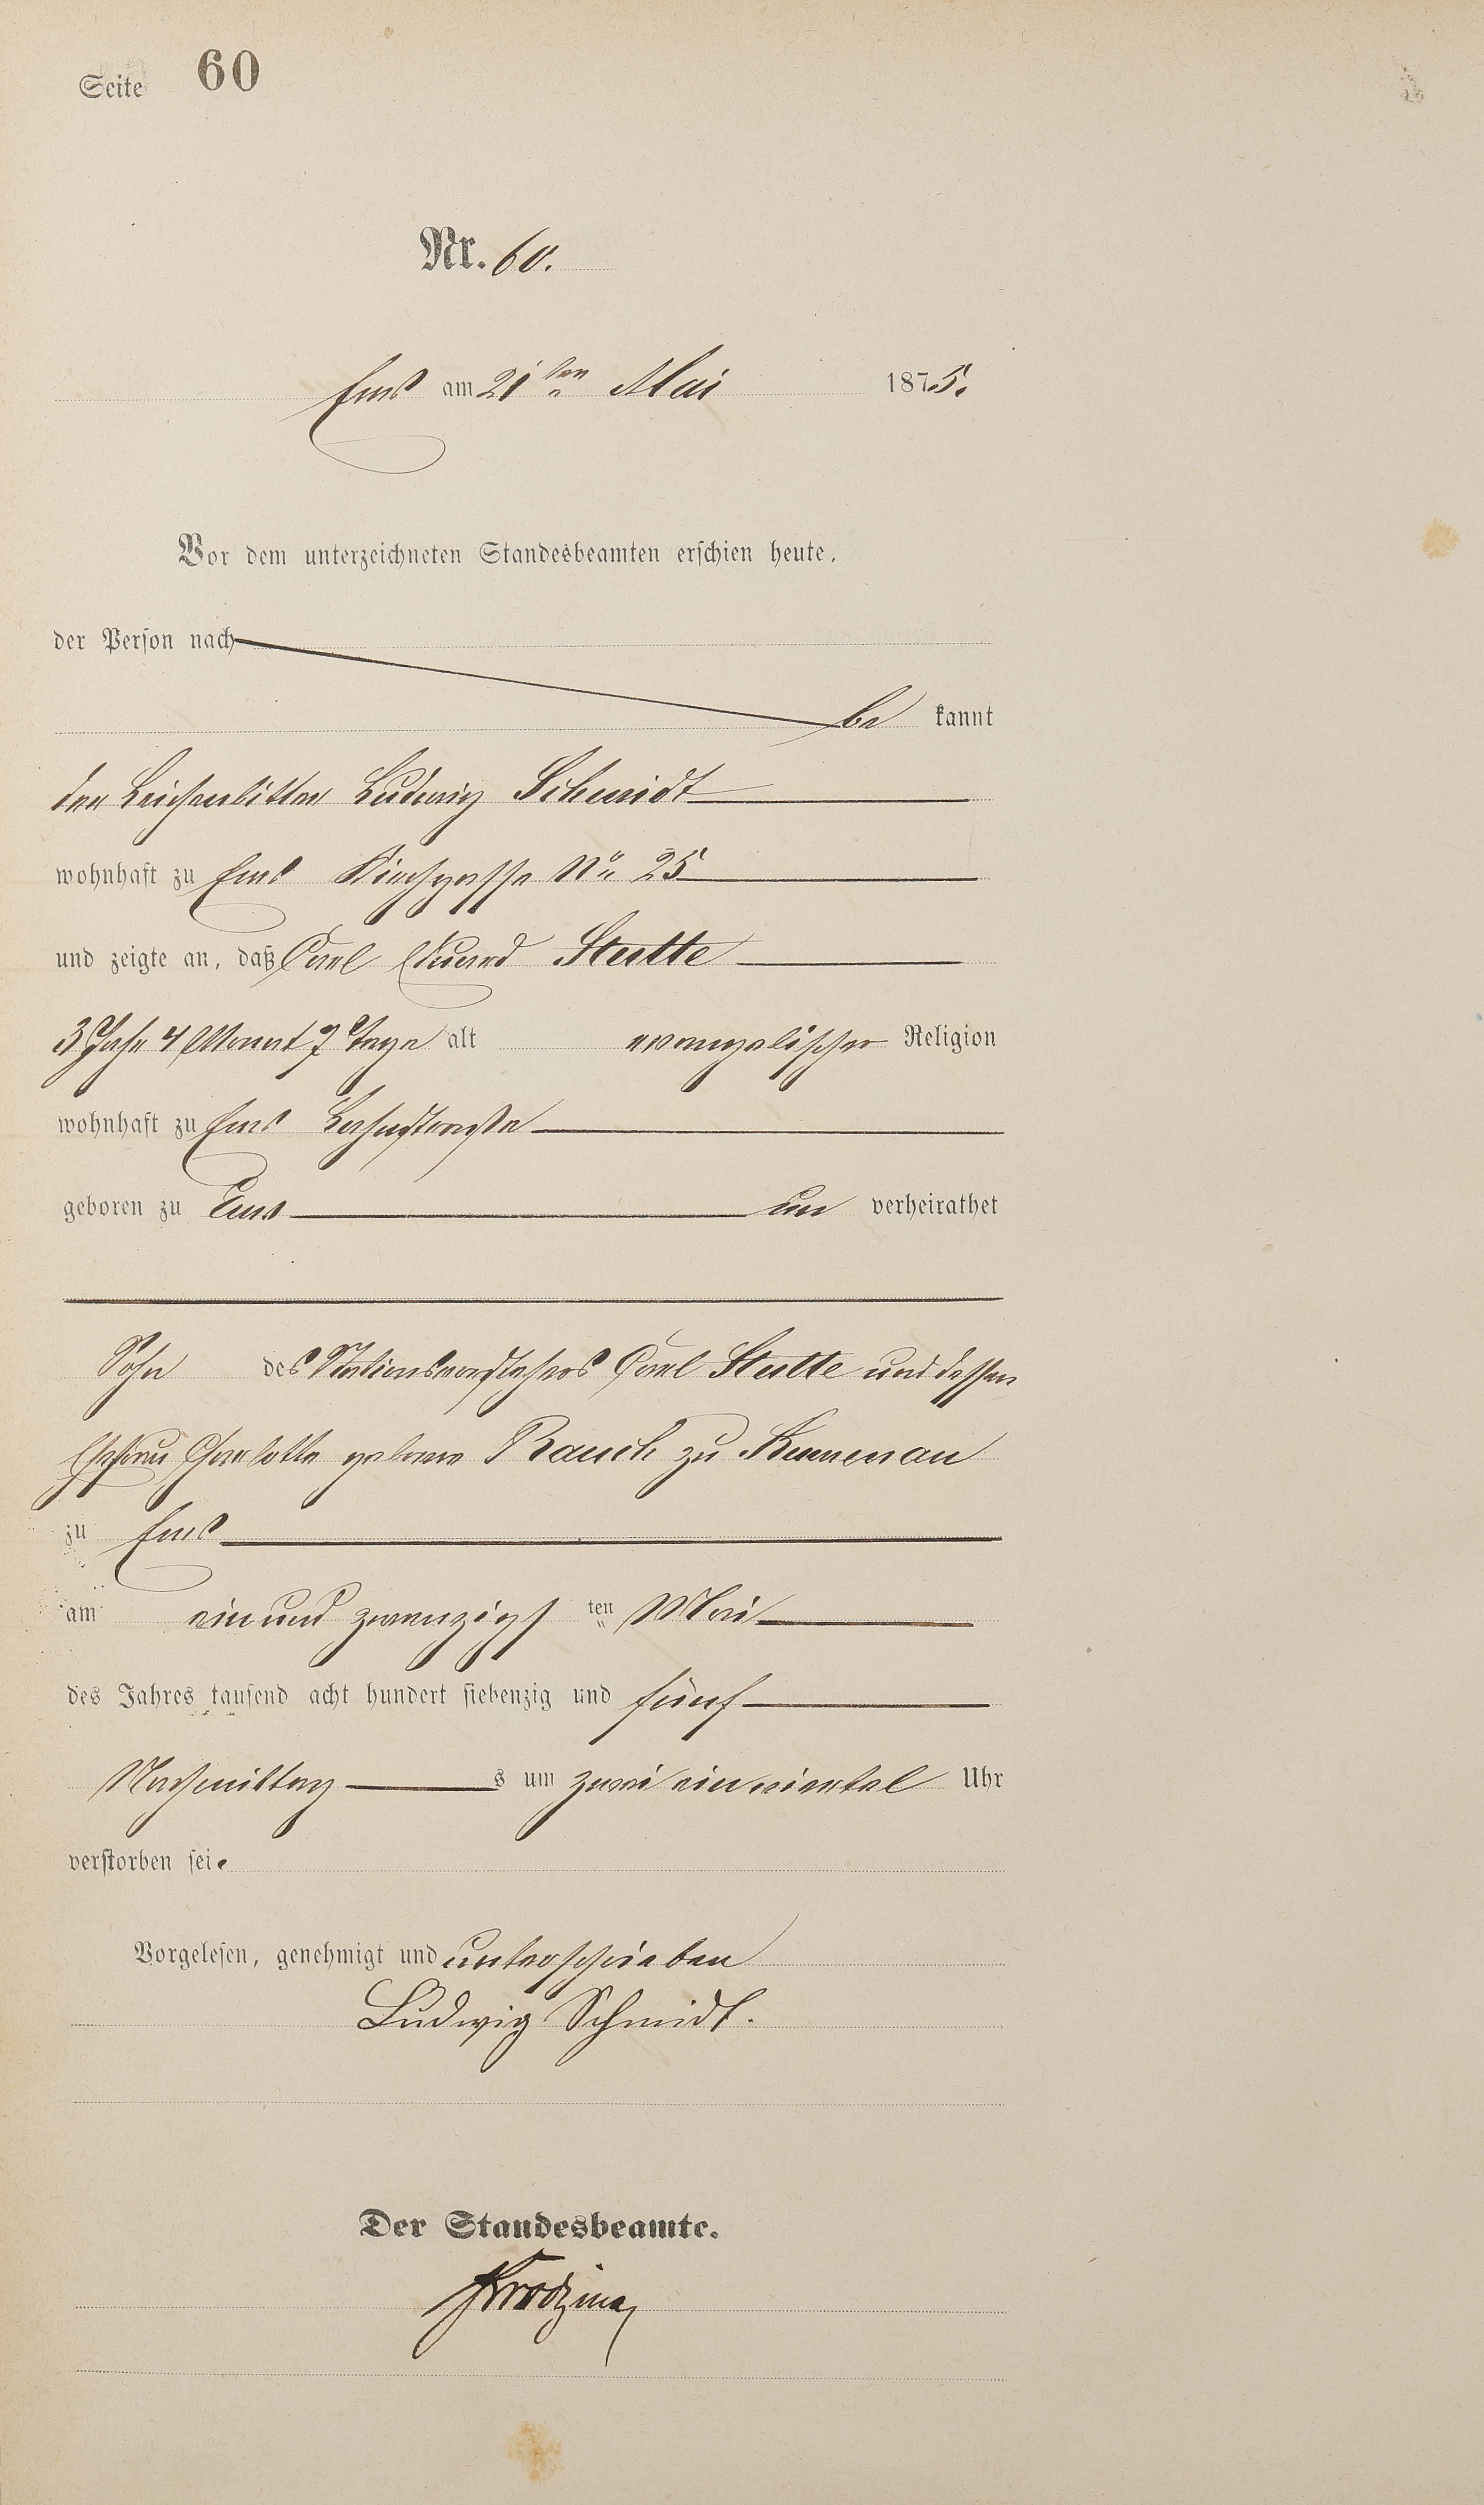 Seite 60
Nr. 60.
Ems am 21ten Mai 1875.
Vor dem unterzeichneten Standesbeamten erschien heute,
der Person nach
be kannt
der Leichenbitter Ludwig Schmidt
wohnhaft zu Ems Kirchgasse No 25
und zeigte an, daß Carl Eduard Stutte
3 Jahr 4 Monat 7 Tage alt evangelischer Religion
wohnhaft zu Ems Lahnstraße
geboren zu Ems un verheirathet
Sohn des Stationsvorstehers Carl Stutte und dessen
Ehefrau Charlotte geborne Rauch zu
zu Ems
am ein und zwanzigs ten Mai
des Jahres tausend acht hundert siebenzig und fünf
Nachmittag s um zwei ein viertel Uhr
verstorben sei.
Vorgelesen, genehmigt und unterschrieben
Ludwig Schmidt.
Der Standesbeamte.